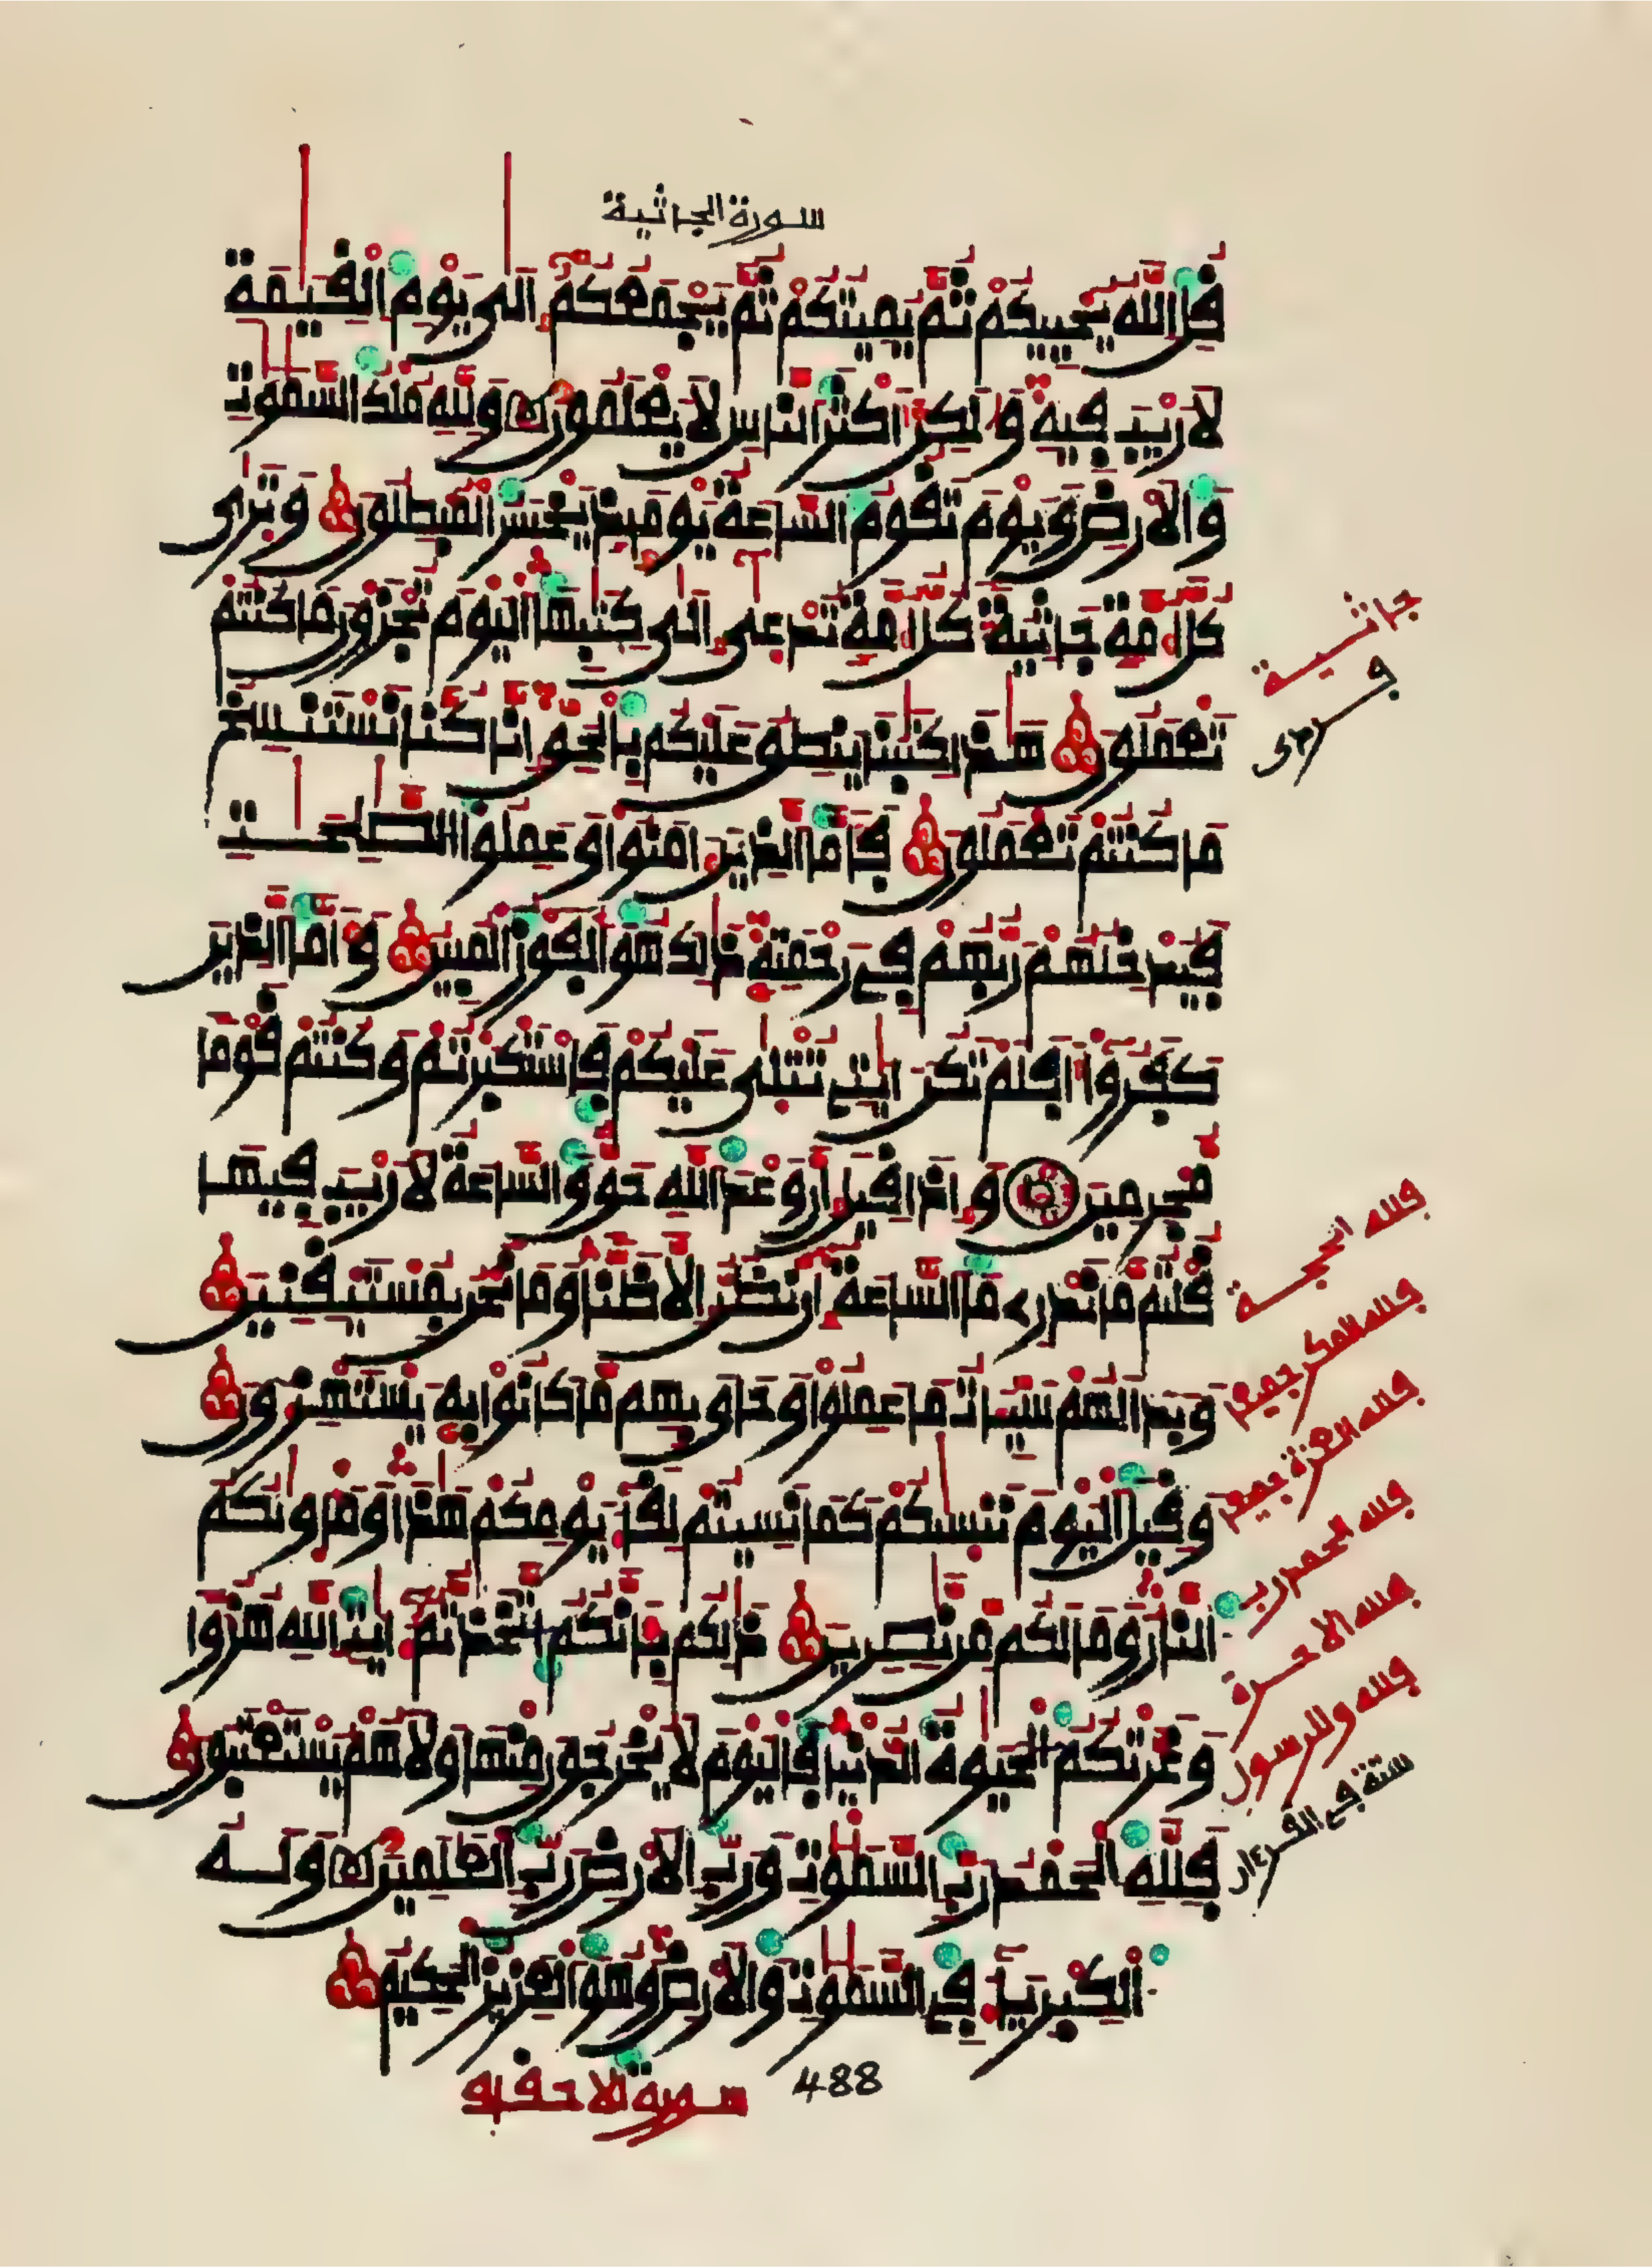 سورة الجاثية
قُلِ اللَّهُ يُحْيِيكُمْ ثُمَّ يُمِيتُكُمْ ثُمَّ يَجْمَعُكُمْ إِلَى يَوْمِ الْقِيَمَةِ
لَا رَيْبَ فِيهِ وَلَكِنَّ أَكْثَرَ النَّاسِ لَا يَعْلَمُونَ وَلِلَّهِ مُلْكُ السَّمَوَتِ
وَالْأَرْضِ وَيَوْمَ تَقُومُ السَّاعَةُ يَوْمَئِذٍ يَخْسَرُ الْمُبْطِلُونَ وَتَرَى
كُلَّ أُمَّةٍ جَاثِيَةً كُلُّ أُمَّةٍ تُدْعَى إِلَى كِتَبِهَا الْيَوْمَ تُجْزَوْنَ مَا كُنتُمْ
تَعْمَلُونَ هَذَا كِتَبُنَا يَنطِقُ عَلَيْكُم بِالْحَقِّ إِنَّا كُنَّا نَسْتَنسِخُ
مَا كُنتُمْ تَعْمَلُونَ فَأَمَّا الَّذِينَ ءَامَنُوا وَعَمِلُوا الصَّلِحَتِ
فَيُدْخِلُهُمْ رَبُّهُمْ فِي رَحْمَتِهِ ذَلِكَ هُوَ الْفَوْزُ الْمُبِينُ وَأَمَّا الَّذِينَ
كَفَرُوا أَفَلَمْ تَكُنْ ءَايَتِي تُتْلَى عَلَيْكُمْ فَاسْتَكْبَرْتُمْ وَكُنتُمْ قَوْمًا
مُّجْرِمِينَ وَإِذَا قِيلَ إِنَّ وَعْدَ اللَّهِ حَقٌّ وَالسَّاعَةُ لَا رَيْبَ فِيهَا
قُلْتُم مَّا نَدْرِي مَا السَّاعَةُ إِن نَّظُنُّ إِلَّا ظَنًّا وَمَا نَحْنُ بِمُسْتَيْقِنِينَ
وَبَدَا لَهُمْ سَيِّئَاتُ مَا عَمِلُوا وَحَاقَ بِهِم مَّا كَانُوا بِهِ يَسْتَهْزِءُونَ
وَقِيلَ الْيَوْمَ نَنسَىكُمْ كَمَا نَسِيتُمْ لِقَاءَ يَوْمِكُمْ هَذَا وَمَأْوَىكُمُ
النَّارُ وَمَا لَكُم مِّن نَّصِرِينَ ذَلِكُم بِأَنَّكُمُ اتَّخَذتُّمْ ءَايَتِ اللَّهِ هُزُؤًا
وَغَرَّتْكُمُ الْحَيَوةُ الدُّنْيَا فَالْيَوْمَ لَا يُخْرَجُونَ مِنْهَا وَلَا هُمْ يُسْتَعْتَبُونَ
فَلِلَّهِ الْحَمْدُ رَبِّ السَّمَوَتِ وَرَبِّ الْأَرْضِ رَبِّ الْعَلَمِينَ وَلَهُ
الْكِبْرِيَاءُ فِي السَّمَوَتِ وَالْأَرْضِ وَهُوَ الْعَزِيزُ الْحَكِيمُ
488
سورة الاحقاف
جاثية
فلله الحجة
فلله المكر جميعا
فلله العزة جميعا
فلله الحمد رب
فلله الاخرة
فلله وللرسول
ستة في القرءان